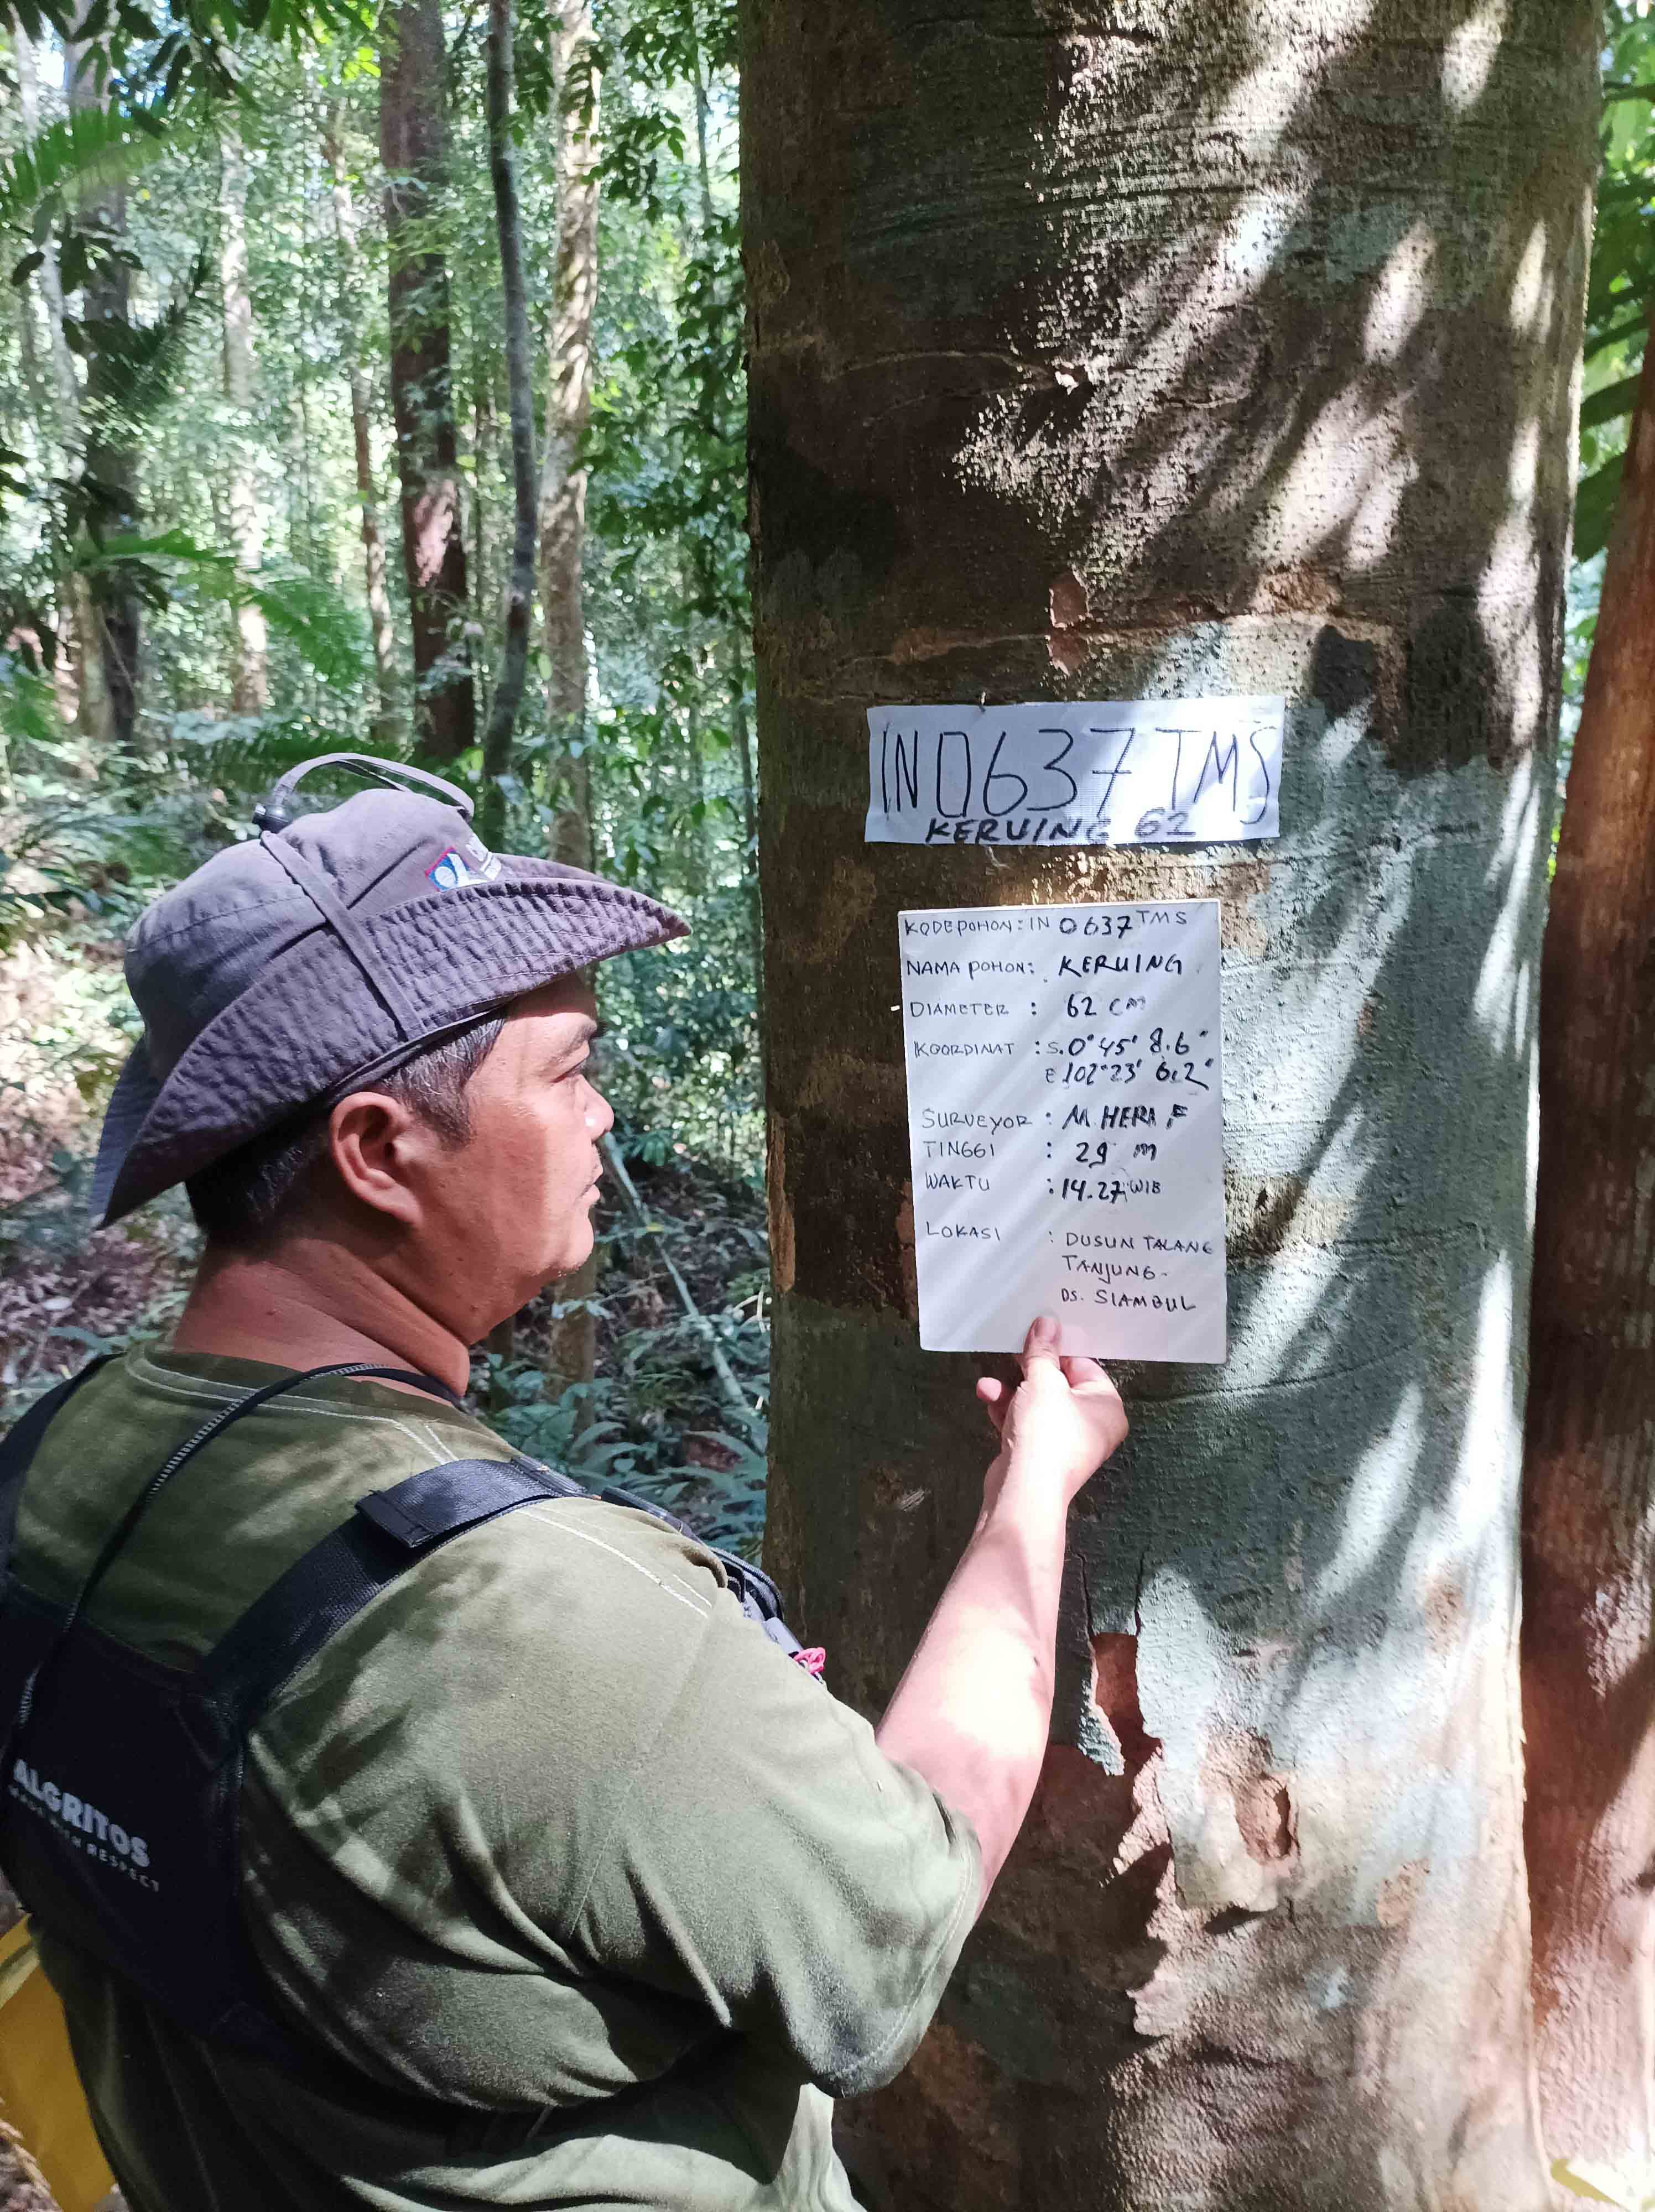 IN 0637 TMS
KERUING 62
KODE POHON : IN 0637 TMS
NAMA POHON : KERUING
DIAMETER : 62 CM
KOORDINAT : S.0°45' 8.6"
E 102°23' 6.2"
SURVEYOR : M. HERI F
TINGGI : 29 m
WAKTU : 14.27 WIB
LOKASI : DUSUN TALANG
TANJUNG -
DS. SIAMBUL
ALGRITOS
MADE WITH RESPECT